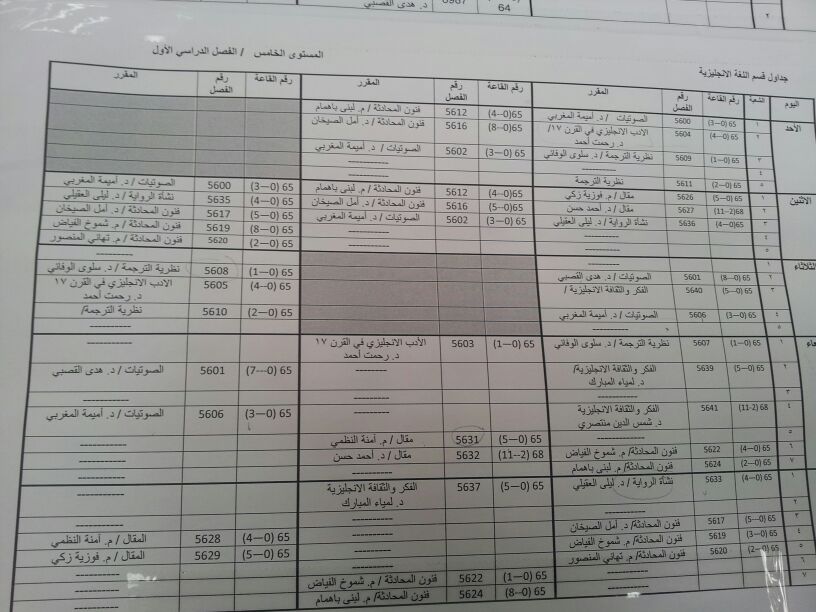 د. هدى القصبي
64
٢
المستوى الخامس / الفصل الدراسي الأول
جداول قسم اللغة الانجليزية
اليوم الشعبة رقم القاعة رقم الفصل المقرر رقم القاعة رقم الفصل المقرر رقم القاعة رقم الفصل المقرر
الأحد ١ 65 (0—3) 5600 الصوتيات / د. أميمة المغربي 65(0--4) 5612 فنون المحادثة / م. لبنى باهمام
٢ 65 (0—4) 5604 الادب الانجليزي في القرن ١٧/ د. رحمت أحمد 65(0--8) 5616 فنون المحادثة / د. أمل الصيخان
٣ 65 (0—1) 5609 نظرية الترجمة / د. سلوى الوفائي 65 (0—3) 5602 الصوتيات / د. أميمة المغربي
٤ ----------- -----------
٥ 65 (0—2) 5611 نظرية الترجمة
الاثنين ١ 65 (0—5) 5626 مقال / م. فوزية زكي 65(0--4) 5612 فنون المحادثة / م. لبنى باهمام 65 (0—3) 5600 الصوتيات / د. أميمة المغربي
٢ 68 (2–11) 5627 مقال / د. أحمد حسن 65(0--5) 5616 فنون المحادثة / د. أمل الصيخان 65 (0—4) 5635 نشأة الرواية / د. ليلى العقيلي
٣ 65(0—4) 5636 نشأة الرواية / د. ليلى العقيلي 65 (0—3) 5602 الصوتيات / د. أميمة المغربي 65 (0—5) 5617 فنون المحادثة / د. أمل الصيخان
٤ ----------- ----------- 65 (0—8) 5619 فنون المحادثة / م. شموخ الفياض
٥ ----------- ----------- 65 (0—2) 5620 فنون المحادثة / م. تهاني المنصور
الثلاثاء ١ ----------- -----------
٢ 65 (0--8) 5601 الصوتيات / د. هدى القصبي 65 (0—1) 5608 نظرية الترجمة / د. سلوى الوفائي
٣ 65 (0—5) 5640 الفكر والثقافة الانجليزية / 65 (0--4) 5605 الادب الانجليزي في القرن ١٧ د. رحمت أحمد
٤ 65 (0—3) 5606 الصوتيات / د. أميمة المغربي 65 (0—2) 5610 نظرية الترجمة/
٥ ----------- -----------
١ 65 (0—1) 5607 نظرية الترجمة / د. سلوى الوفائي 65 (0—1) 5603 الأدب الانجليزي في القرن ١٧ د. رحمت أحمد -----------
٢ 65 (0—5) 5639 الفكر والثقافة الانجليزية/ د. لمياء المبارك -------- 65 (0---7) 5601 الصوتيات / د. هدى القصبي
٣ ----------- ----------- -----------
٤ 68 (2-11) 5641 الفكر والثقافة الانجليزية د. شمس الدين منتصري ----------- 65 (0—3) 5606 الصوتيات / د. أميمة المغربي
٥ ----------- 65 (0—5) 5631 مقال / م. آمنة النظمي -----------
٦ 65 (0—4) 5622 فنون المحادثة/ م. شموخ الفياض 68 (2--11) 5632 مقال / د. أحمد حسن -----------
٧ 65 (0—2) 5624 فنون المحادثة/ م. لبنى باهمام ----------- -----------
١ 65 (0—4) 5633 نشأة الرواية/ د. ليلى العقيلي 65 (0—5) 5637 الفكر والثقافة الانجليزية د. لمياء المبارك -----------
٢ ----------- ----------- -----------
٣ 65 (0---5) 5617 فنون المحادثة/ د. أمل الصيخان ----------- 65 (0—4) 5628 المقال / م. آمنة النظمي
٤ 65 (0—3) 5619 فنون المحادثة/ م. شموخ الفياض ----------- 65 (0—5) 5629 المقال / م. فوزية زكي
٥ 65 (0—2) 5620 فنون المحادثة/ م. تهاني المنصور ----------- -----------
٦ ----------- 65 (0—1) 5622 فنون المحادثة / م. شموخ الفياض -----------
٧ ----------- 65 (0--8) 5624 فنون المحادثة / م. لبنى باهمام -----------